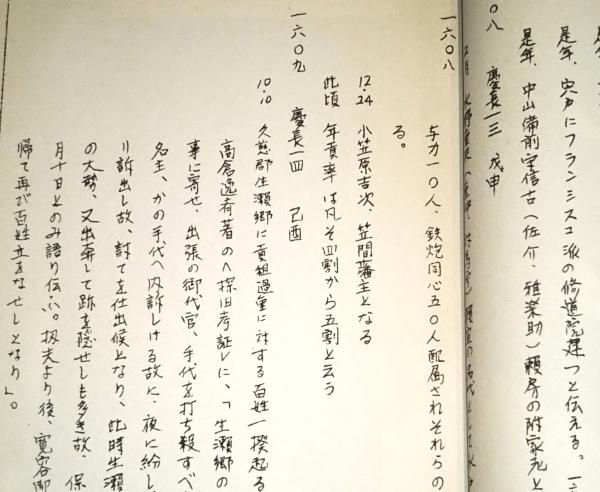 是年、宍戸にフランシスコ派の修道院建つと伝える。一六
〇八 慶長一三 戊申
是年、中山備前守信吉(佐介、雅楽助)頼房の附家老と
一六〇八
与力一〇人、鉄炮同心五〇人配属されそれらの
る。
12.24 小笠原吉次、笠間藩主となる
此頃 年貢率は凡そ四割から五割と云う
一六〇九 慶長一四 己酉
10.10 久慈郡生瀬郷に貢租過重に対する百姓一揆起る
高倉逸斉著の「探旧考証」に、「生瀬郷の
事に寄せ、出張の御代官、手代を打ち殺すべ
名主、かの手代へ内訴しける故に、夜に紛し、
り訴出し故、討てを仕出候となり、此時生瀬
の大勢、又出奔して跡を隠せしも多き故、保
月十日とのみ語り伝ふ。扨夫より後、寛容御
帰て再び百姓立をなせしとなり」。